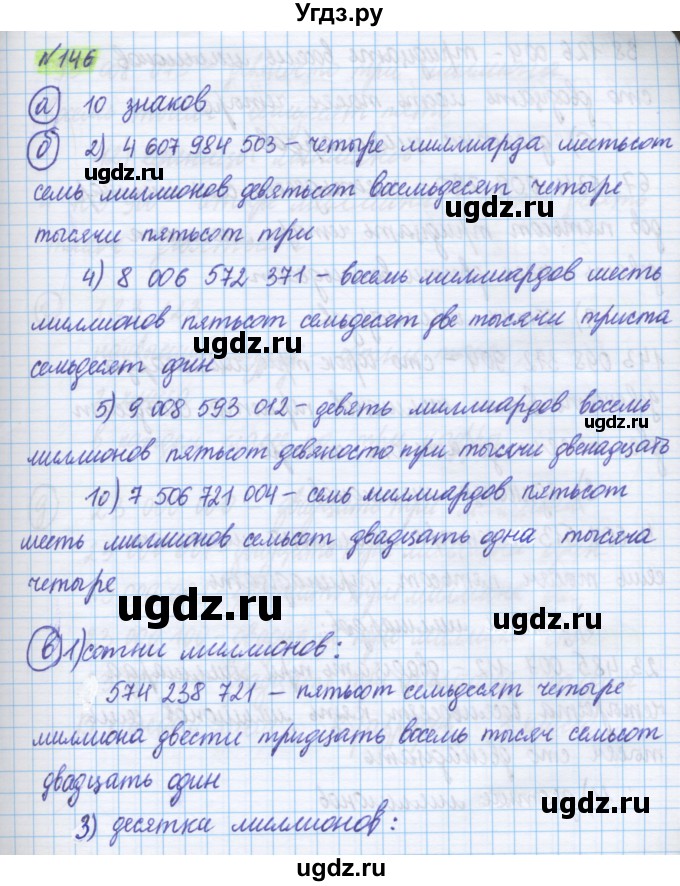 Угдз.ру
№146
а) 10 знаков
б) 2) 4 607 984 503 – четыре миллиарда шестьсот
семь миллионов девятьсот восемьдесят четыре
тысячи пятьсот три
4) 8 006 572 371 – восемь миллиардов шесть
миллионов пятьсот семьдесят две тысячи триста
семьдесят один
5) 9 008 593 012 – девять миллиардов восемь
миллионов пятьсот девяносто три тысячи двенадцать
10) 7 506 721 004 – семь миллиардов пятьсот
шесть миллионов семьсот двадцать одна тысяча
четыре
в) 1) сотни миллионов:
574 238 721 – пятьсот семьдесят четыре
миллиона двести тридцать восемь тысяч семьсот
двадцать один
3) десятка миллионов:
ugdz.ru
ugdz.ru
ugdz.ru
ugdz.ru
ugdz.ru
ugdz.ru
ugdz.ru
ugdz.ru
ugdz.ru
ugdz.ru
ugdz.ru